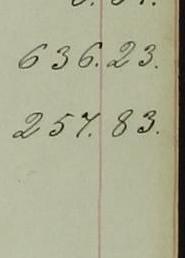 636.23.
257.83.